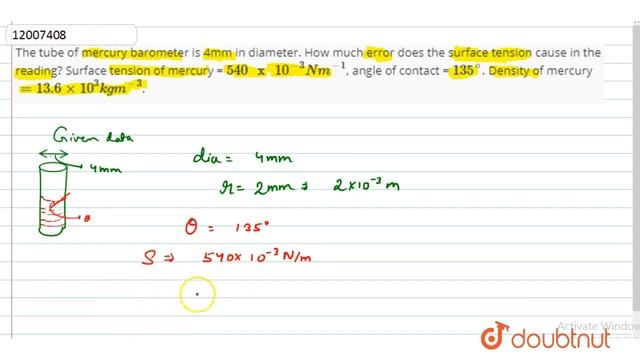 12007408
The tube of mercury barometer is 4mm in diameter. How much error does the surface tension cause in the
reading? Surface tension of mercury = 540 x 10⁻³Nm⁻¹, angle of contact = 135°. Density of mercury
= 13.6 × 10³kgm⁻³.
Given data
4mm
θ
dia = 4mm
r = 2mm ⇒ 2×10⁻³ m
θ = 135°
S ⇒ 540×10⁻³ N/m
Activate Window
doubtnut